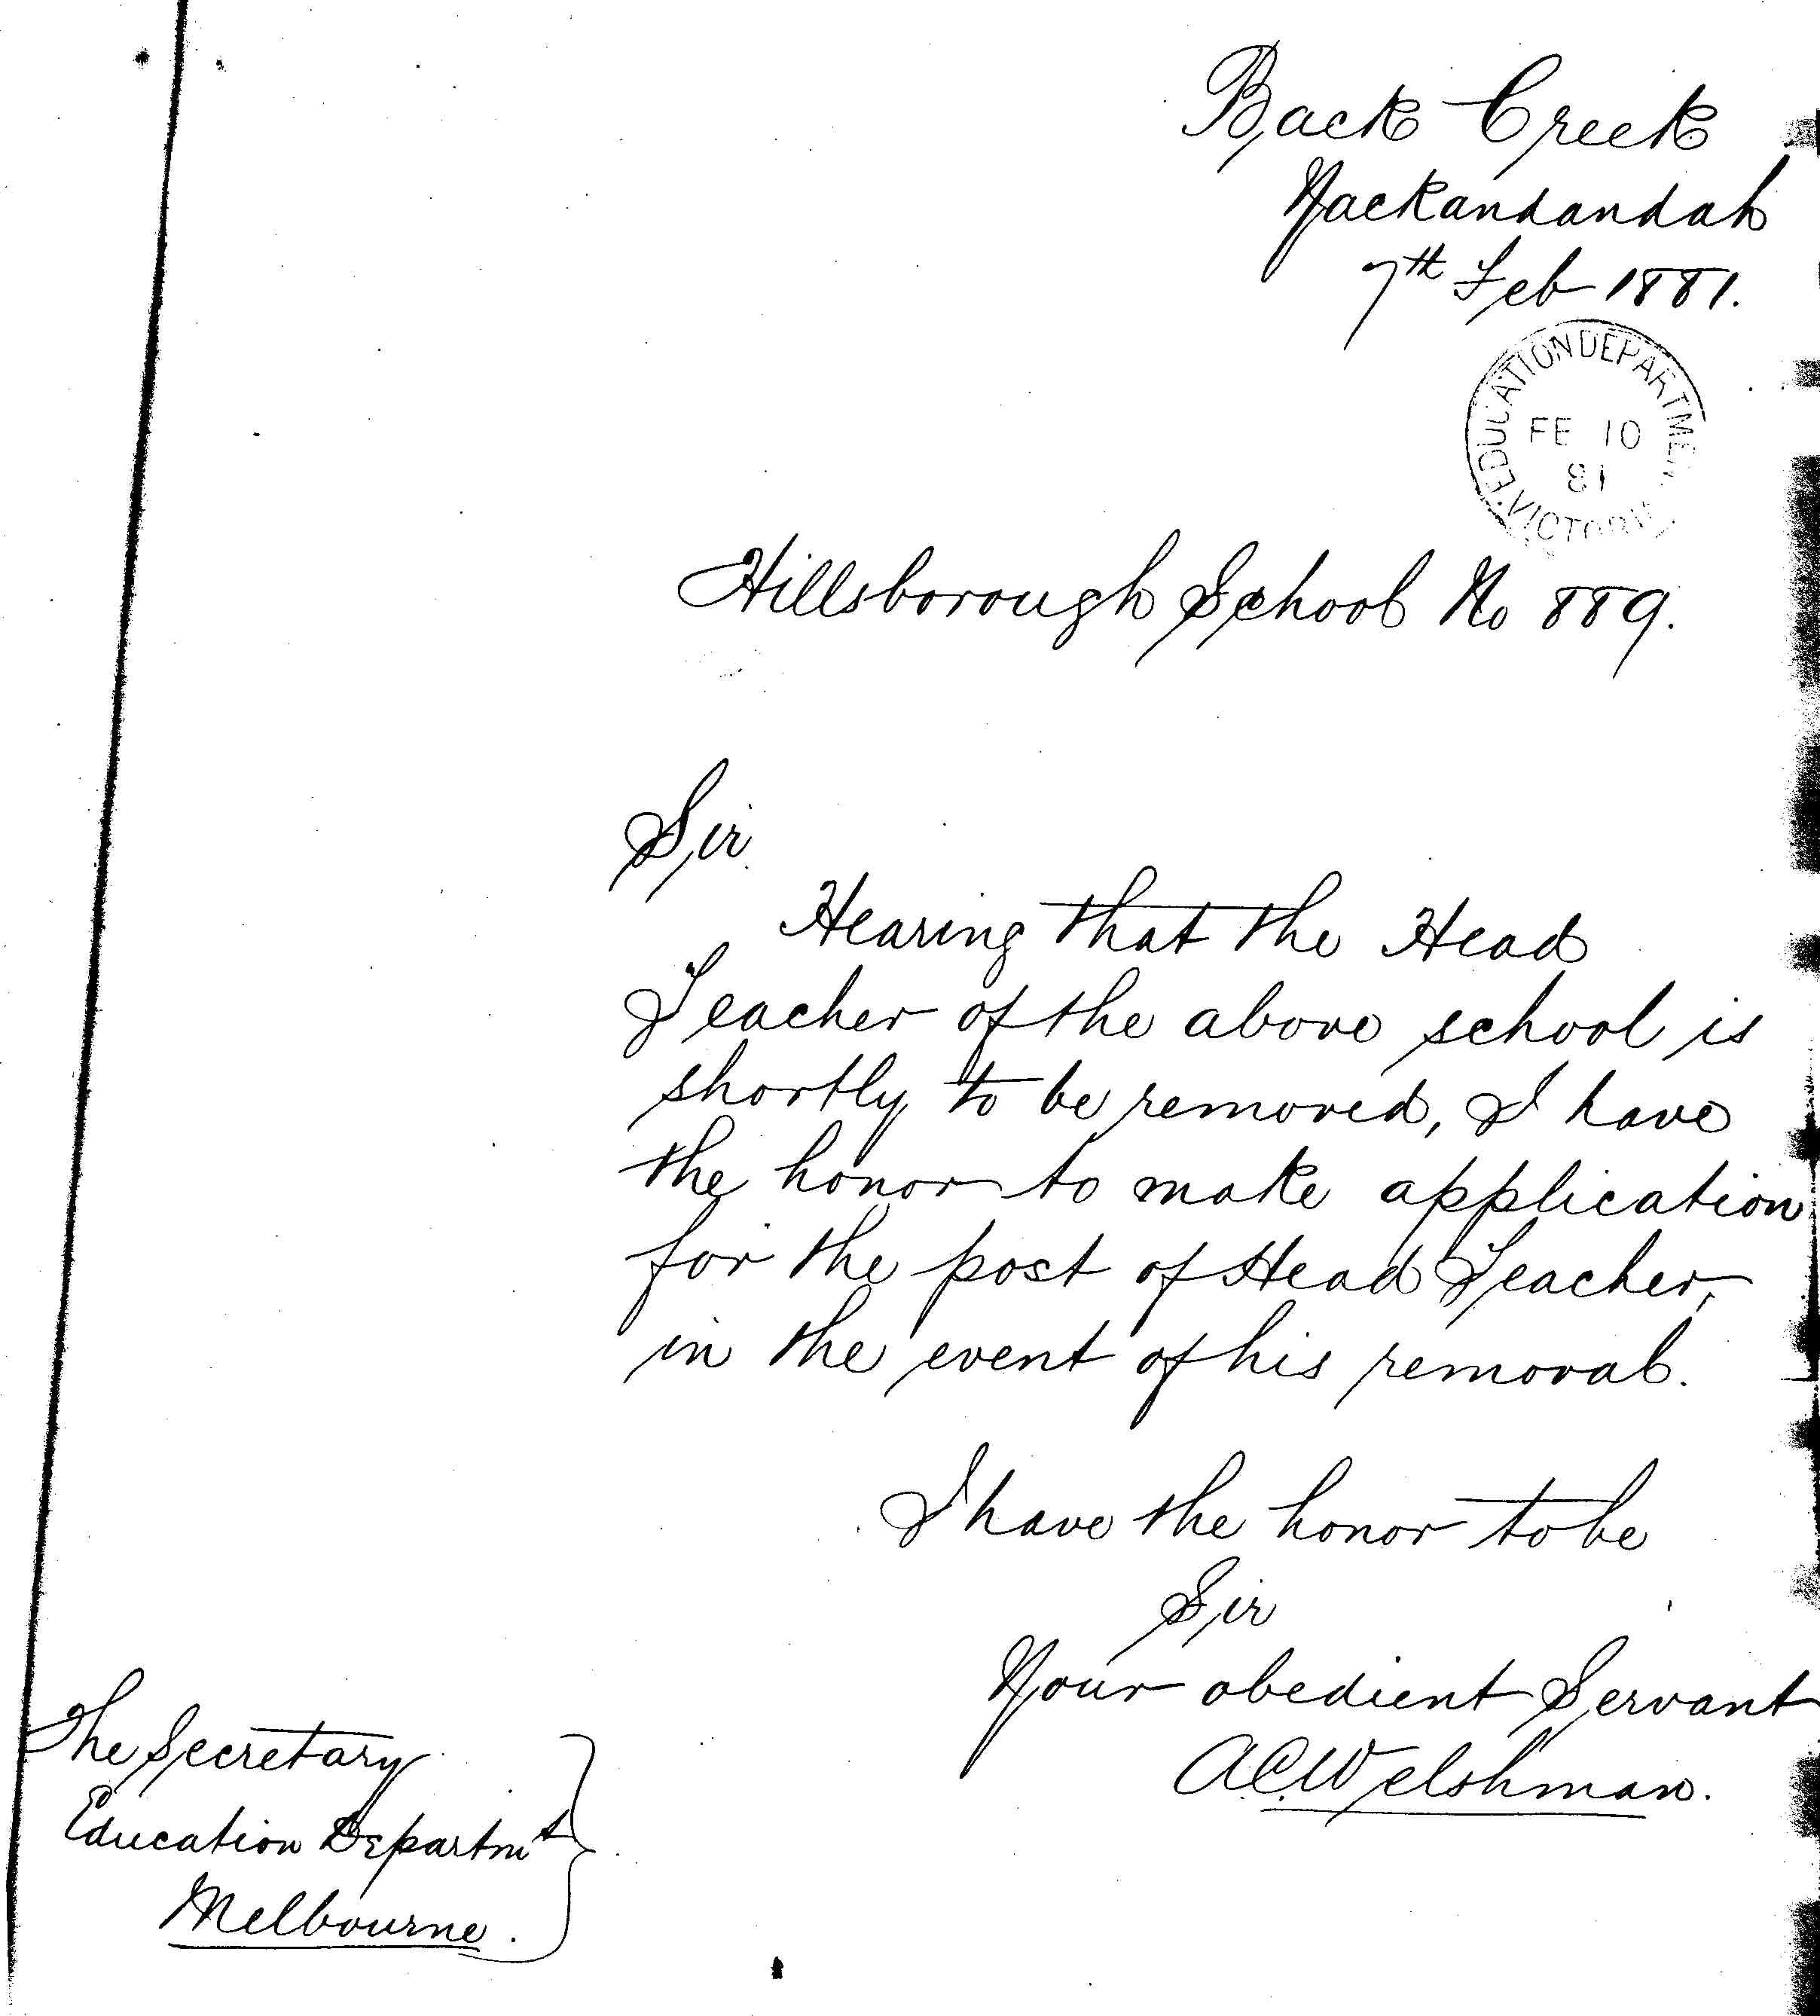 Back Creek
Yackandandah
7th Feb 1881.
EDUCATION DEPARTMENT
VICTORIA
FE 10
81
Hillsborough School No 889.
Sir
Hearing that the Head
Teacher of the above school is
shortly to be removed, I have
the honor to make application
for the post of Head Teacher,
in the event of his removal.
I have the honor to be
Sir
Your obedient Servant
A.C. Welshman.
The Secretary
Education Departmt
Melbourne.